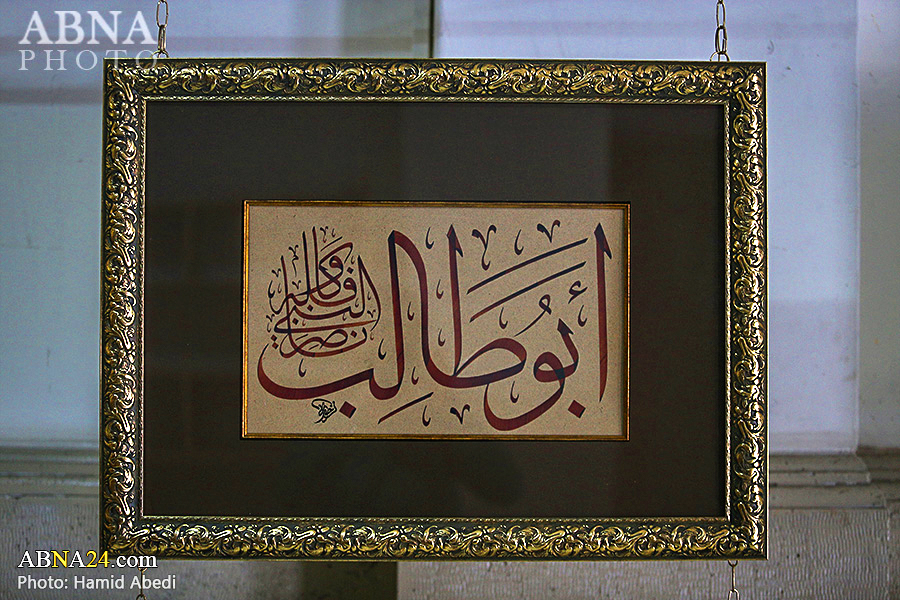 ABNA
PHOTO
أبو طالب
ناصر النبي
ABNA24.com
Photo: Hamid Abedi